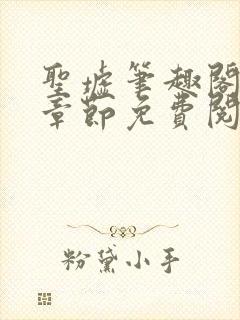 聖墟筆趣閣
章節免費閱
粉黛小手